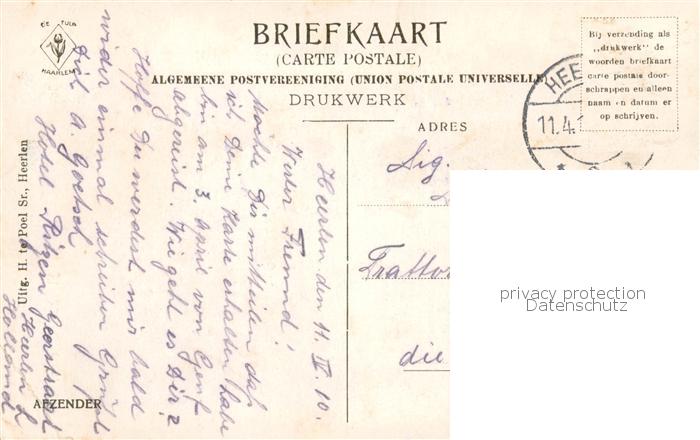 DE TULP
HAARLEM
BRIEFKAART
(CARTE POSTALE)
ALGEMEENE POSTVEREENIGING (UNION POSTALE UNIVERSELLE)
DRUKWERK
Bij verzending als
„drukwerk" de
woorden briefkaart
carte postale door-
schrappen en alleen
naam en datum er
op schrijven.
HEE
11.4.1
ADRES
Sig.
Tratto
die
privacy protection
Datenschutz
Heerlen den 11. IV. 10.
Werter Freund!
Möchte Dir mitteilen daß
ich Deine Karte erhalten habe
bin am 3. April von Genf
abgereist. Wie geht es Dir?
Hoffe Du werdest mir bald
wieder einmal schreiben Grüßt
Dich A. Goetsch
Hotel Geerstraat
Heerlen
Holland
Uitg. H. te Poel Sr., Heerlen
AFZENDER